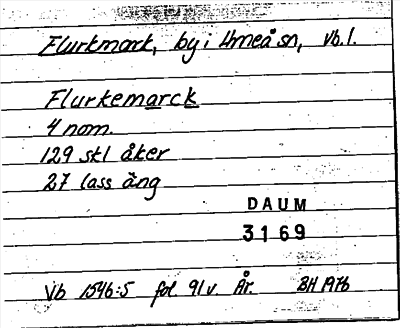 Flurkmark, by i Umeå sn, Vb.l.
Flurkemarck
4 nom.
129 skl åker
27 lass äng
DAUM
3169
Vb 1546:5 fol. 91v. År. BH 1976